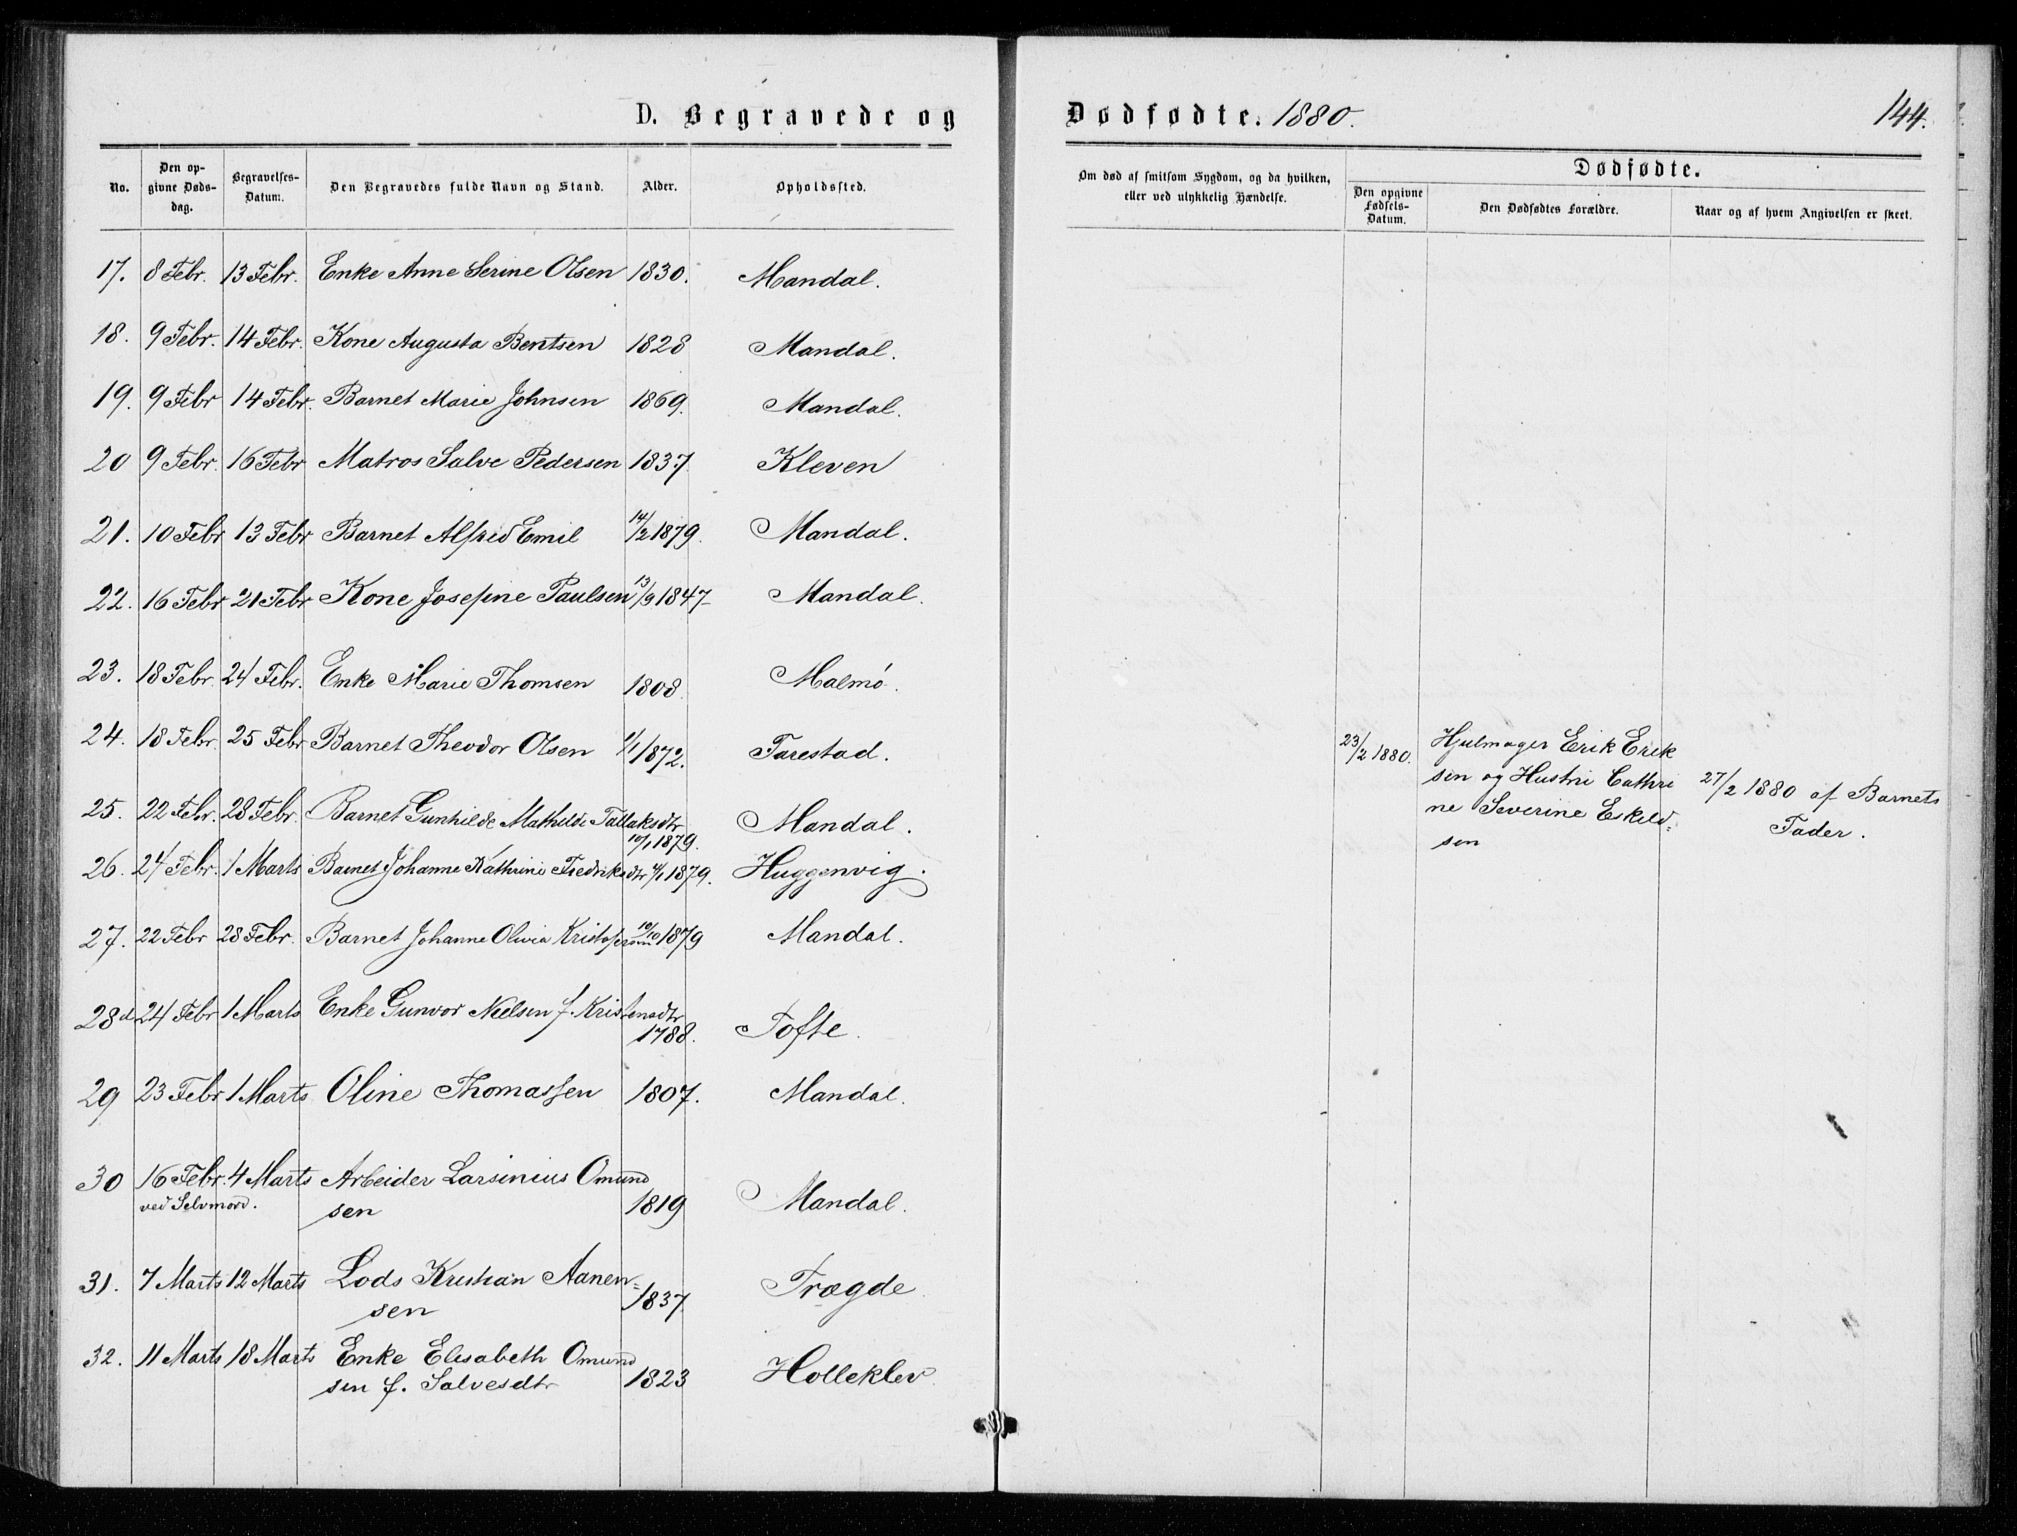 D. Begravede og
No.
Den opgivne Dødsdag.
Begravelses-Datum.
Den Begravedes fulde Navn og Stand.
Alder.
Opholdssted.
17. 8 Febr. 13 Febr. Enke Anne Serine Olsen 1830. Mandal.
18. 9 Febr. 14 Febr. Kone Augusta Bentsen 1828 Mandal.
19. 9 Febr 14 Febr. Barnet Marie Johnsen 1869. Mandal.
20 9 Febr. 16 Febr Matros Salve Pedersen 1837. Kleven
21. 10 Febr 13 Febr Barnet Alfred Emil 14/2 1879. Mandal.
22. 16 Febr 21 Febr Kone Josefine Paulsen 13/9 1847- Mandal.
23. 18 Febr. 24 Febr. Enke Marie Thomsen 1808. Malmö.
24. 18 Febr. 25 Febr Barnet Theodor Olsen 1/1 1872. Tarestad.
25. 22 Febr. 28 Febr. Barnet Gunhilde Mathilde Tallaksdtr
10/1 1879. Mandal.
26. 24 Febr. 1 Marts Barnet Johanne Kathrine Fredriksdtr 4/1 1879. Huggenvig.
27. 22 Febr 28 Febr. Barnet Johanne Olivia Kristofersen 10/10 1879 Mandal.
28d 24 Febr 1 Marts Enke Gunvor Nielsen f. Kristensdtr
1788. Tofte.
29 23 Febr 1 Marts Oline Thomassen 1807. Mandal.
30 16 Febr. 4 Marts Arbeider Larsinius Omund
ved Selvmord. sen 1819 Mandal.
31. 7 Marts 12 Marts Lods Kristian Aanen=
sen 1837. Trægde.
32. 11 Marts 18 Marts Enke Elisabeth Omund
sen f. Salvesdtr 1823 Holleklev.
Dødfødte. 1880.
144.
Om død af smitsom Sygdom, og da hvilken,
eller ved ulykkelig Hændelse.
Dødfødte.
Den opgivne
Fødsels-
Datum.
Den Dødfødtes Forældre.
Naar og af hvem Angivelsen er skeet.
23/2 1880. Hjulmager Erik Erik
sen og Hustru Cathri
ne Severine Eskild=
sen
27/2 1880 af Barnets
Fader.